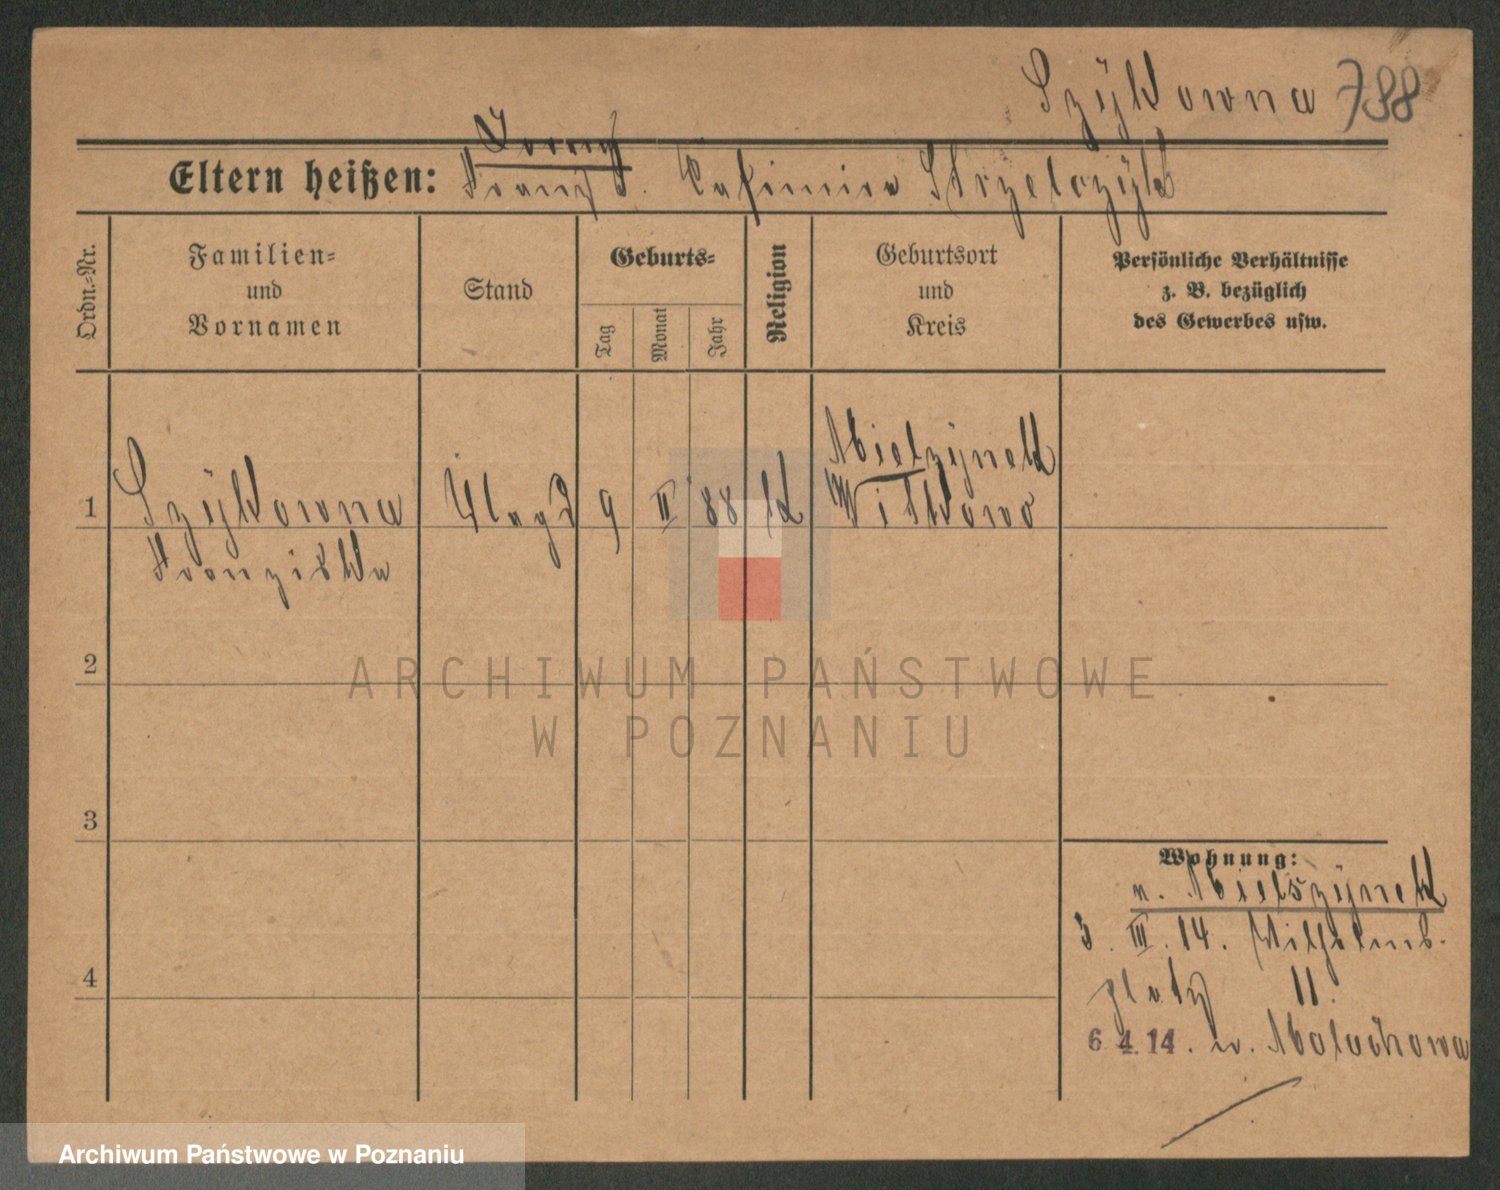 Szÿkowna 788
Franz
Eltern heißen: Franz S. Kasimira Strzelczÿk
Ordn.-Nr.
Familien-
und
Vornamen
Stand
Geburts-
Tag
Monat
Jahr
Religion
Geburtsort
und
Kreis
Persönliche Verhältnisse
z. B. bezüglich
des Gewerbes usw.
1 Szÿkowna Magd 9 II 88 K Mielzÿnek
Witkowo
Franziska
2
3
4
Wohnung:
v. Mielszÿnek
3. III. 14. Wilhelms-
platz 11.
6 4. 14. n. Malachowo
ARCHIWUM PAŃSTWOWE
W POZNANIU
Archiwum Państwowe w Poznaniu